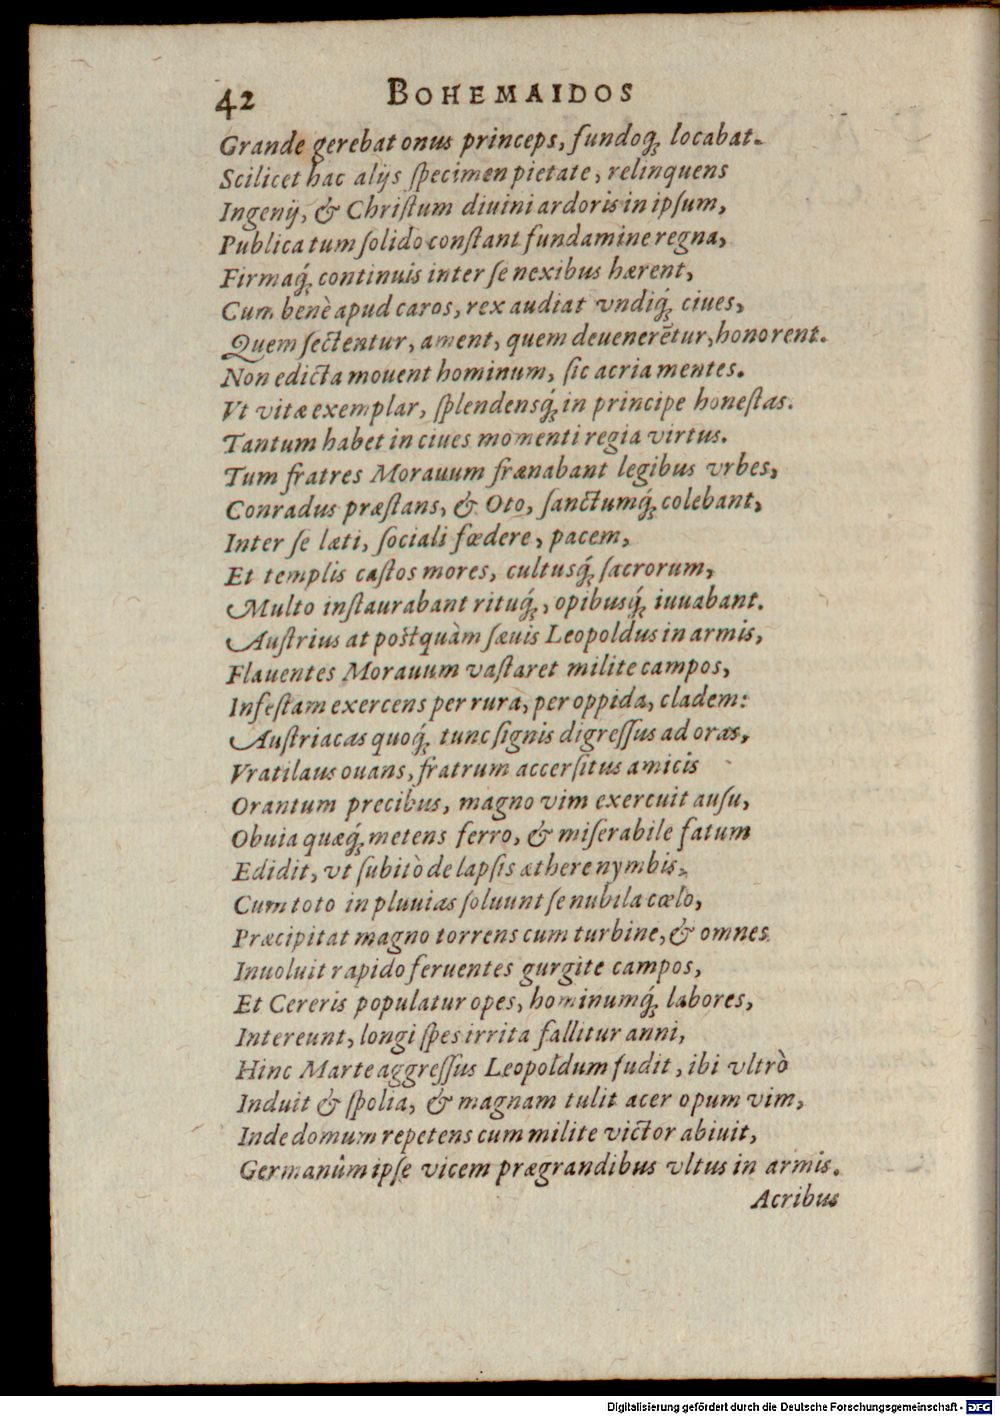 42 BOHEMAIDOS
Grande gerebat onus princeps, fundoq́; locabat.
Scilicet hac alijs ſpecimen pietate, relinquens
Ingenij, & Chriſtum diuini ardoris in ipſum,
Publica tum ſolido conſtant fundamine regna,
Firmaq́; continuis inter ſe nexibus hærent,
Cum benè apud caros, rex audiat vndiq́; ciues,
Quem ſectentur, ament, quem deuenerētur, honorent.
Non edicta mouent hominum, ſic acria mentes.
Vt vitæ exemplar, ſplendensq́; in principe honeſtas.
Tantum habet in ciues momenti regia virtus.
Tum fratres Morauum frænabant legibus vrbes,
Conradus præſtans, & Oto, ſanctumq́; colebant,
Inter ſe læti, ſociali fœdere, pacem,
Et templis caſtos mores, cultusq́; ſacrorum,
Multo inſtaurabant rituq́;, opibusq́; iuuabant.
Auſtrius at poſtquàm ſæuis Leopoldus in armis,
Flauentes Morauum vaſtaret milite campos,
Infeſtam exercens per rura, per oppida, cladem:
Auſtriacas quoq́; tunc ſignis digreſſus ad oras,
Vratilaus ouans, fratrum accerſitus amicis
Orantum precibus, magno vim exercuit auſu,
Obuia quæq́; metens ferro, & miſerabile fatum
Edidit, vt ſubitò delapſis æthere nymbis,
Cum toto in pluuias ſoluunt ſe nubila cœlo,
Præcipitat magno torrens cum turbine, & omnes
Inuoluit rapido feruentes gurgite campos,
Et Cereris populatur opes, hominumq́; labores,
Intereunt, longi ſpes irrita fallitur anni,
Hinc Marte aggreſſus Leopoldum fudit, ibi vltrò
Induit & ſpolia, & magnam tulit acer opum vim,
Inde domum repetens cum milite victor abiuit,
Germanûm ipſe vicem prægrandibus vltus in armis.
Acribus
Digitalisierung gefördert durch die Deutsche Forschungsgemeinschaft - DFG